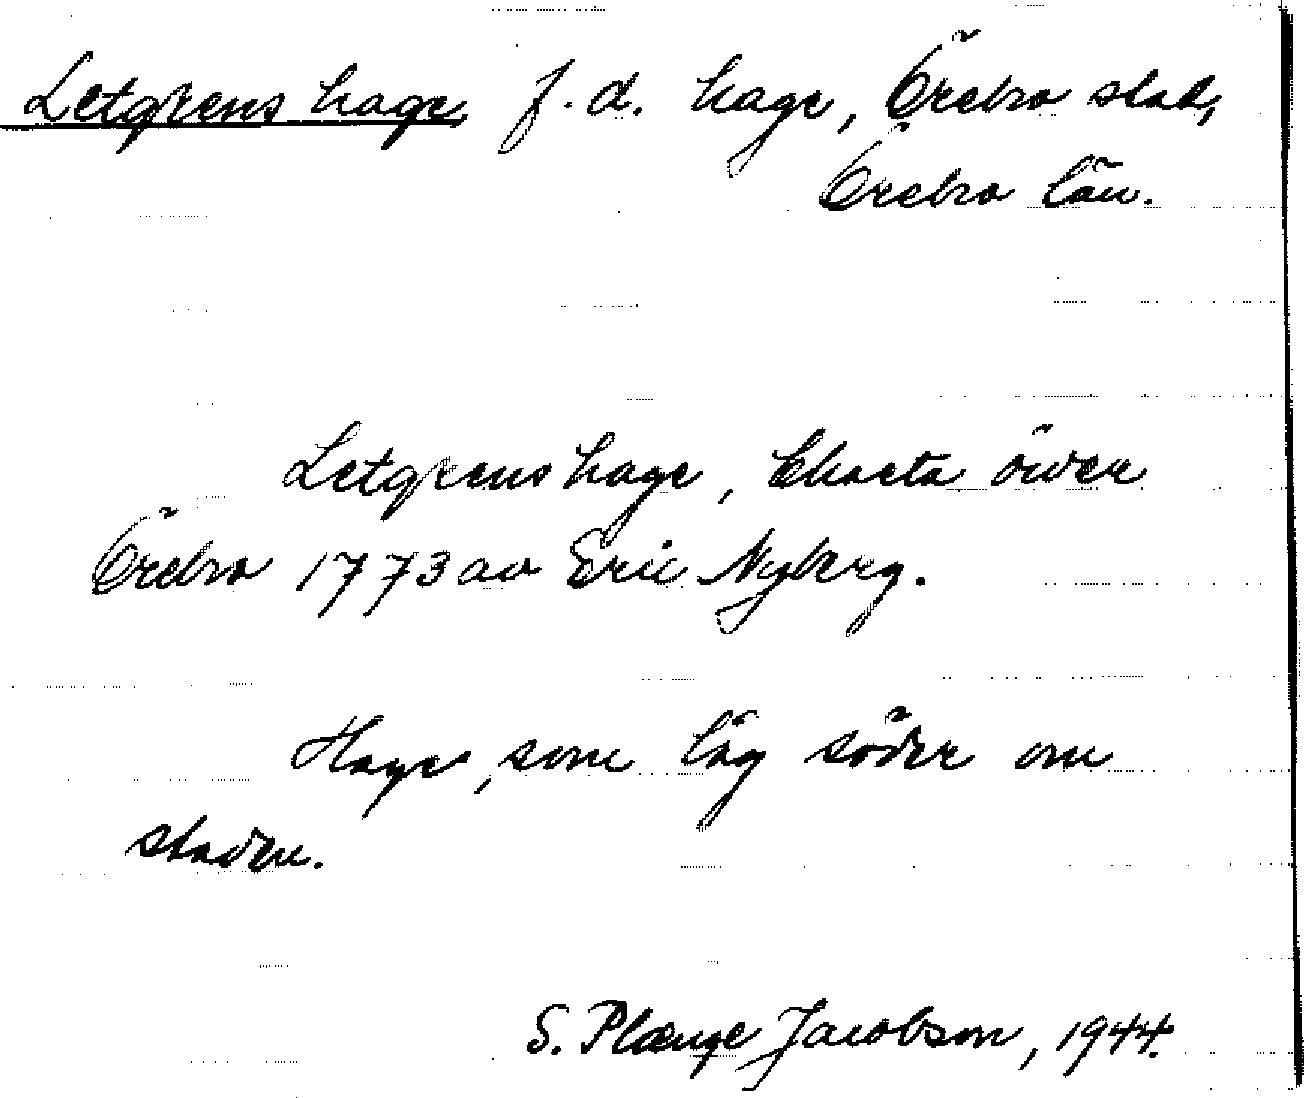 Letgrens hage, f.d. hage, Örebro stad,
Örebro län.
Letgrens hage, Charta öwer
Örebro 1773 av Eric Nyberg.
Hage, som låg söder om
staden.
S. Plænge Jacobson, 1944.